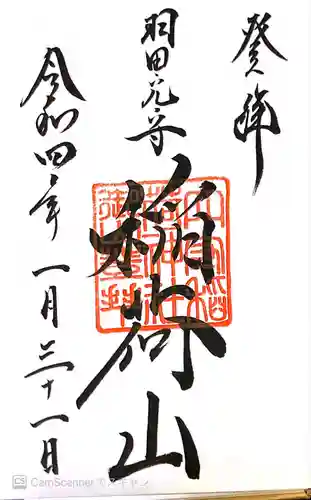 登拝
羽田穴守
稲荷山
令和四年一月三十一日
CamScanner でスキャン